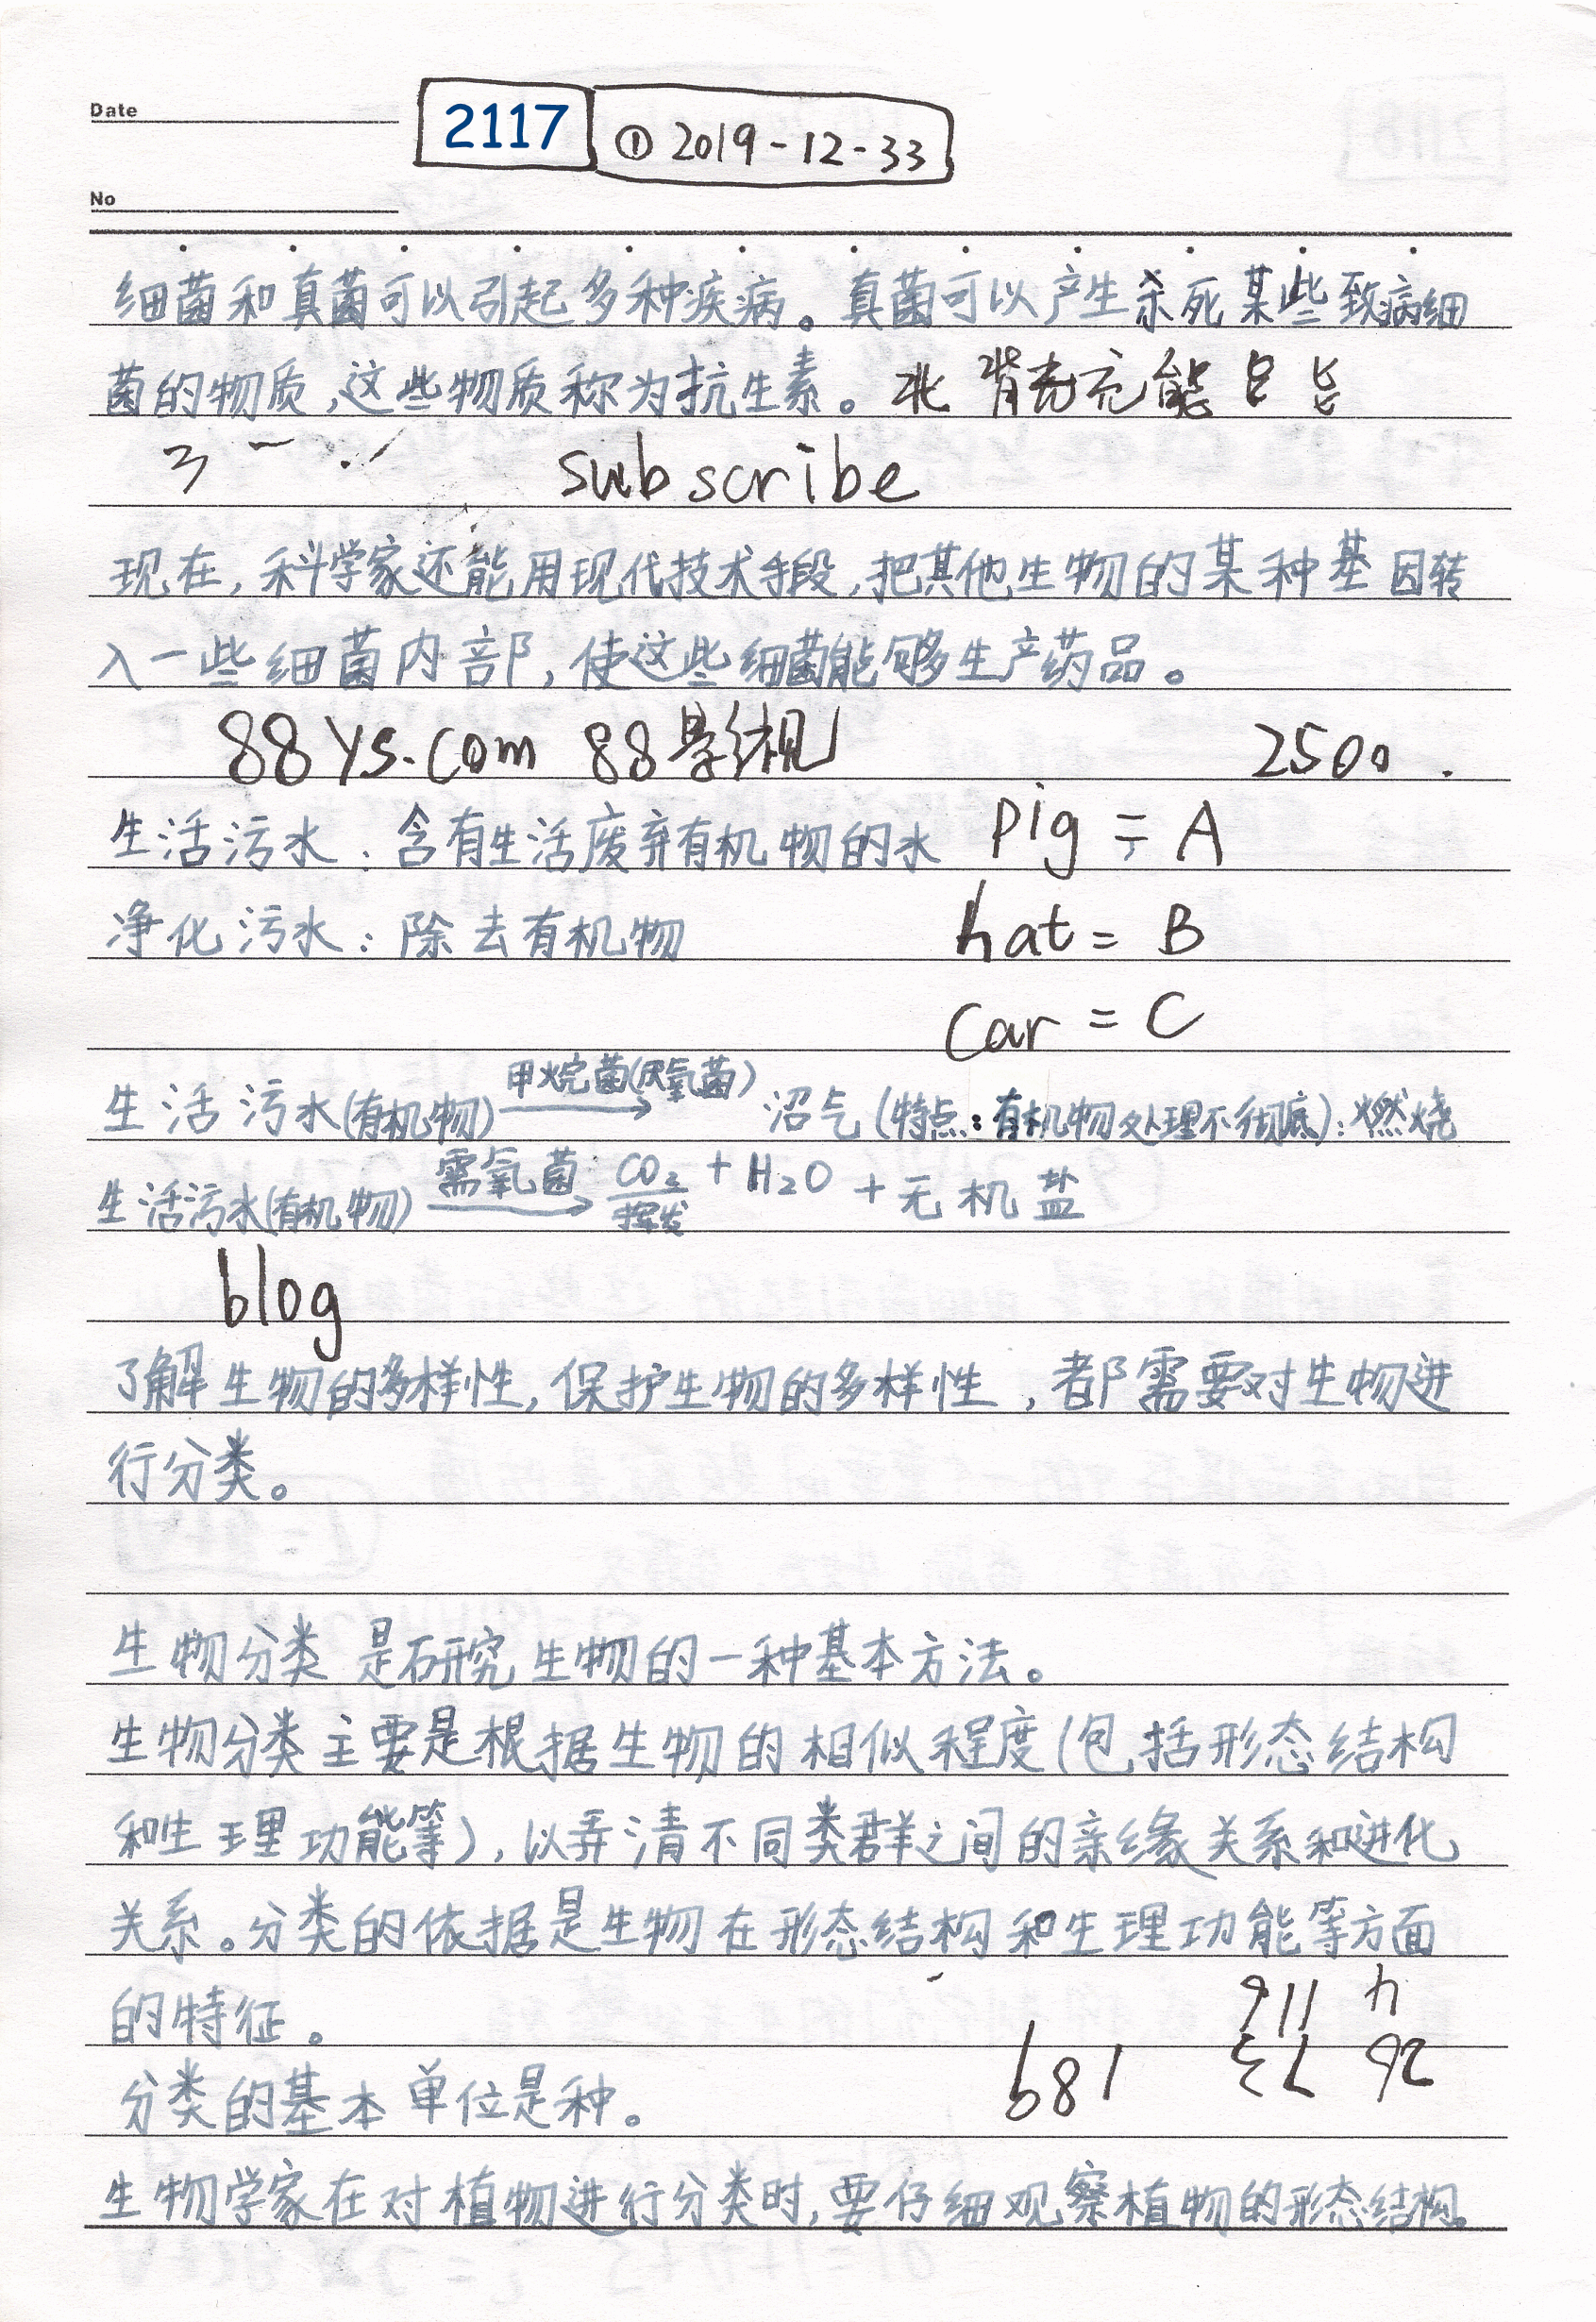 Date
2117 ① 2019-12-33
No
细菌和真菌可以引起多种疾病。真菌可以产生杀死某些致病细
菌的物质,这些物质称为抗生素。北 背 壳 充 能
subscribe
现在,科学家还能用现代技术手段,把其他生物的某种基因转
入一些细菌内部,使这些细菌能够生产药品。
88ys.com 88影视 2500.
生活污水:含有生活废弃有机物的水 pig = A
净化污水:除去有机物 hat = B
car = C
甲烷菌(厌氧菌)
生活污水(有机物) → 沼气(特点:有机物处理不彻底):燃烧
需氧菌
生活污水(有机物) → CO₂ + H₂O + 无机盐
挥发
blog
了解生物的多样性,保护生物的多样性,都需要对生物进
行分类。
生物分类是研究生物的一种基本方法。
生物分类主要是根据生物的相似程度(包括形态结构
和生理功能等),以弄清不同类群之间的亲缘关系和进化
关系。分类的依据是生物在形态结构和生理功能等方面
的特征。
分类的基本单位是种。
生物学家在对植物进行分类时,要仔细观察植物的形态结构。